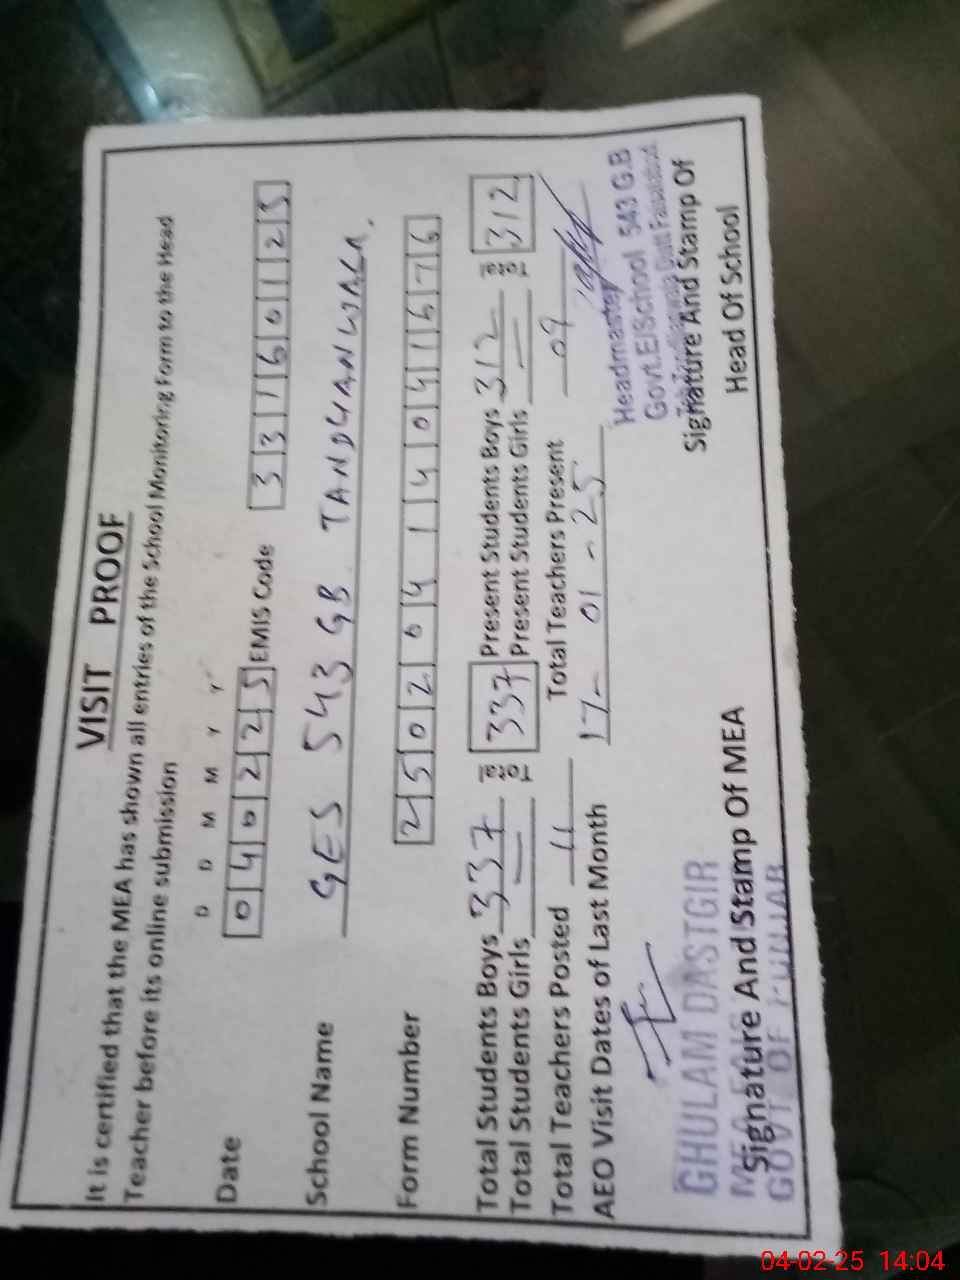 VISIT PROOF
It is certified that the MEA has shown all entries of the School Monitoring Form to the Head
Teacher before its online submission
D D M M Y Y
Date 040225 EMIS Code 33160125
School Name GES 543 GB TANDLIANWALA.
Form Number 25020414041676
Total Students Boys 337 Total 337 Present Students Boys 312 Total 312
Total Students Girls — Present Students Girls —
Total Teachers Posted 11 Total Teachers Present 09
AEO Visit Dates of Last Month 17- 01 - 25
Headmaster
Govt.E/School 543 G.B
GHULAM DASTGIR
Signature And Stamp Of MEA
GOVT OF PUNJAB
Signature And Stamp Of
Head Of School
04-02-25 14:04